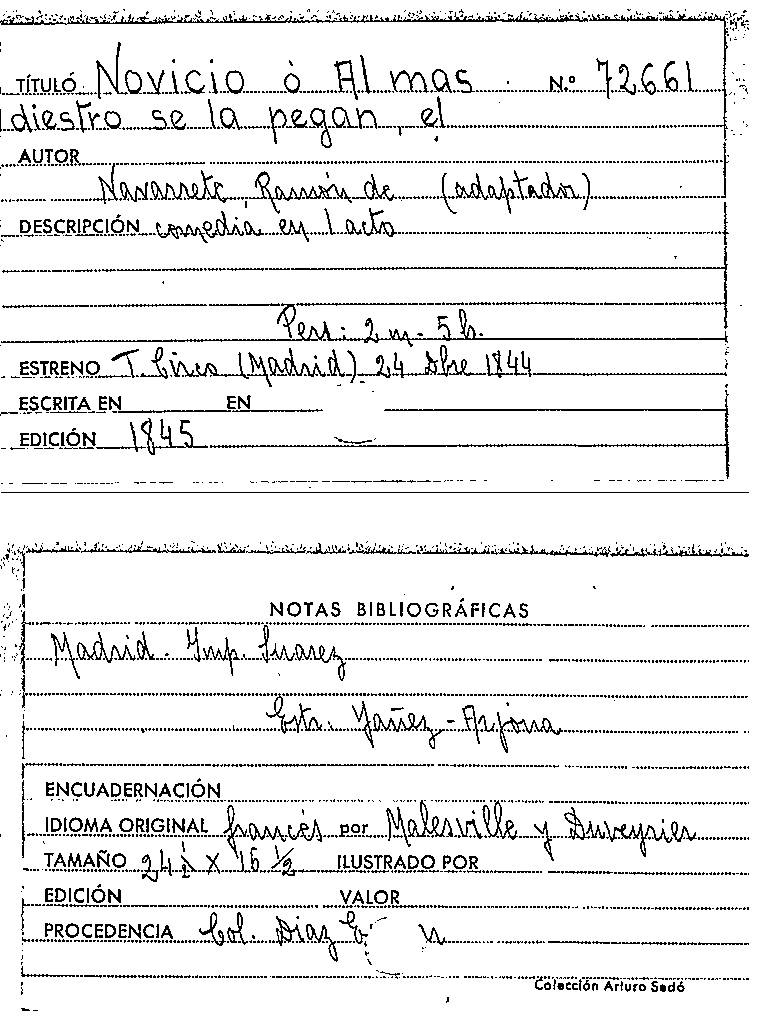 TÍTULO Novicio ó Al mas N.º 72661
diestro se la pegan, el
AUTOR
Navarrete, Ramón de (adaptador)
DESCRIPCIÓN comedia en 1 acto
Pers: 2 m. 5 h.
ESTRENO T. Circo (Madrid) 24 Dbre 1844
ESCRITA EN EN
EDICIÓN 1845
NOTAS BIBLIOGRÁFICAS
Madrid. Imp. Suarez
Estr. Yañez - Arjona
ENCUADERNACIÓN
IDIOMA ORIGINAL francés por Malesville y Duveyrier
TAMAÑO 24 ½ X 16 ½ ILUSTRADO POR
EDICIÓN VALOR
PROCEDENCIA Col. Diaz
Colección Arturo Sedó